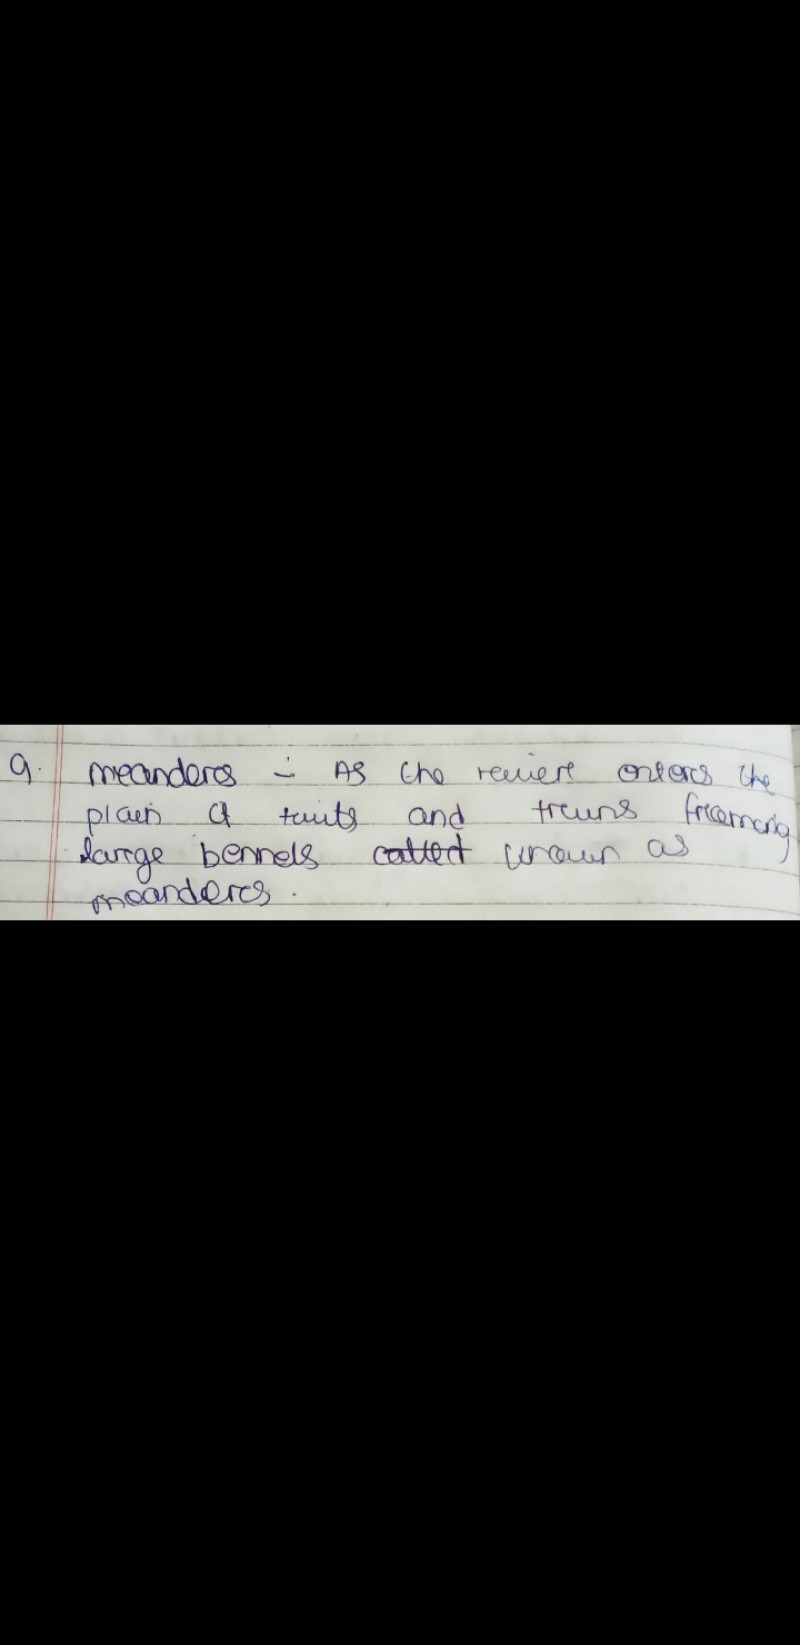 9. meanders :- As the reviere enters the
plain it twits and trewns freeming
large bennels called known as
meanders.